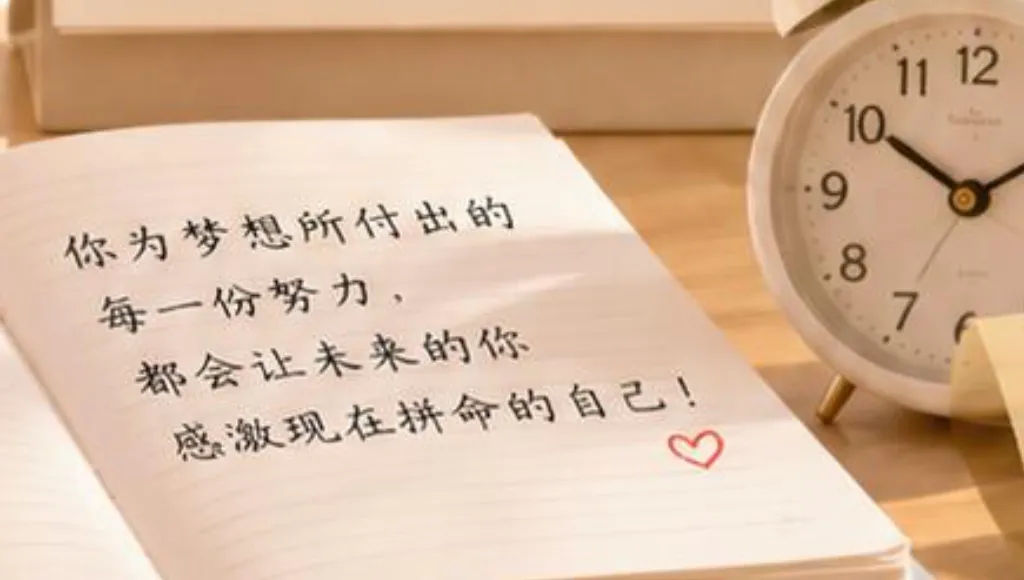 你为梦想所付出的
每一份努力，
都会让未来的你
感激现在拼命的自己！
11 12
10
9
8
7
6